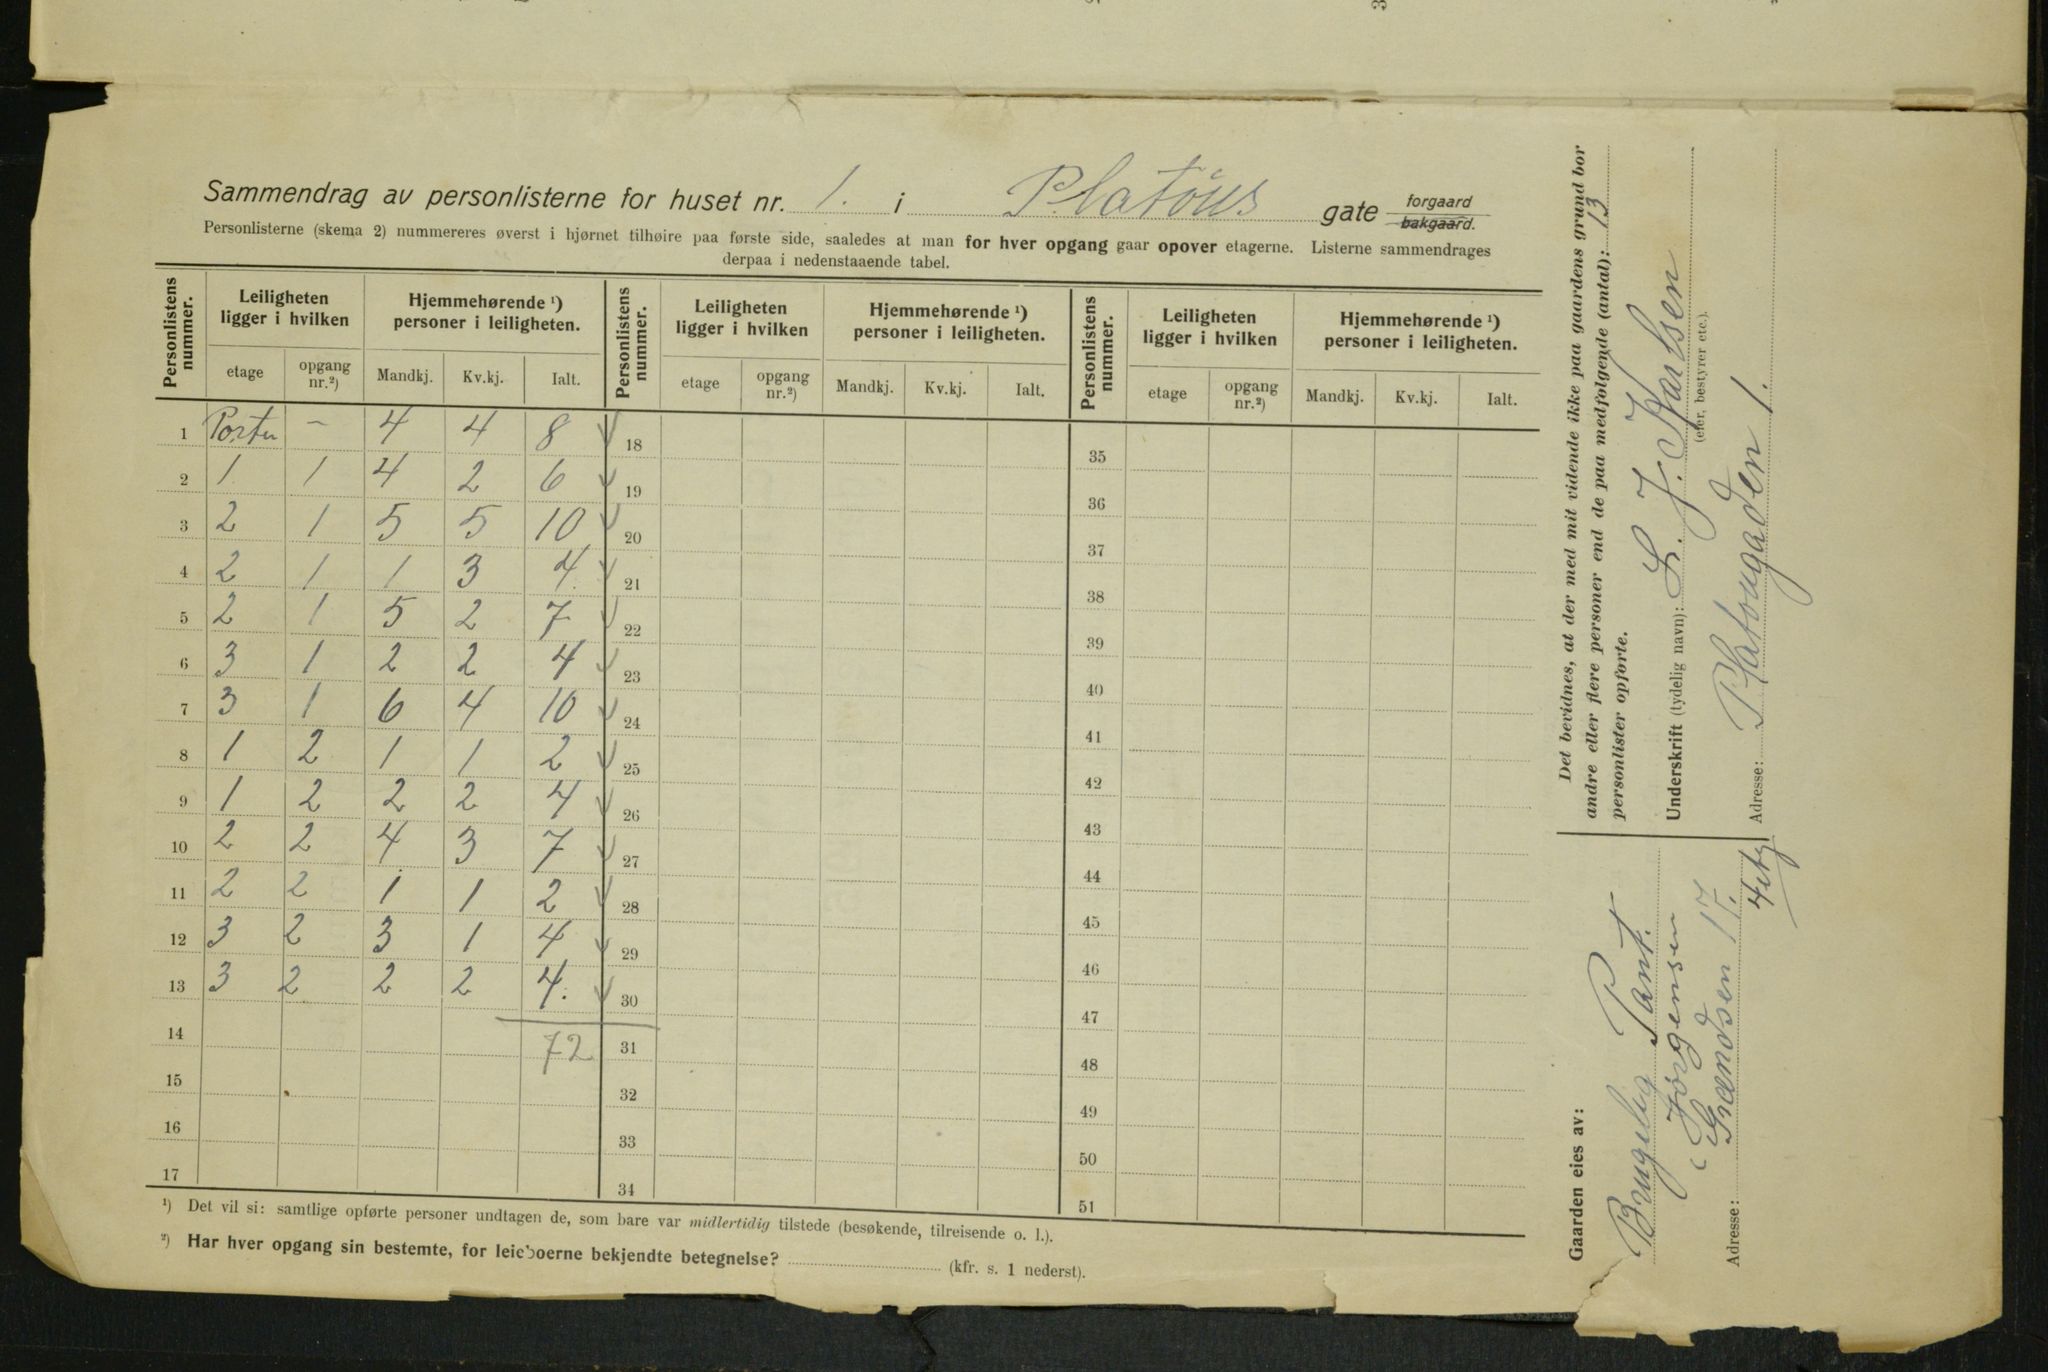 Sammendrag av personlisterne for huset nr. 1. i Platöus gate forgaard
bakgaard.
Personlisterne (skema 2) nummereres øverst i hjørnet tilhøire paa første side, saaledes at man for hver opgang gaar opover etagerne. Listerne sammendrages
derpaa i nedenstaaende tabel.
Personlistens nummer. Leiligheten ligger i hvilken Hjemmehørende ¹) personer i leiligheten. Personlistens nummer. Leiligheten ligger i hvilken Hjemmehørende ¹) personer i leiligheten. Personlistens nummer. Leiligheten ligger i hvilken Hjemmehørende ¹) personer i leiligheten.
etage opgang nr.²) Mandkj. Kv.kj. Ialt. etage opgang nr.²) Mandkj. Kv.kj. Ialt. etage opgang nr.²) Mandkj. Kv.kj. Ialt.
1 - 4 4 8 18 35
2 1 1 4 2 6 19 36
3 2 1 5 5 10 20 37
4 2 1 1 3 4 21 38
5 2 1 5 2 7 22 39
6 3 1 2 2 4 23 40
7 3 1 6 4 10 24 41
8 1 2 1 1 2 25 42
9 1 2 2 2 4 26 43
10 2 2 4 3 7 27 44
11 2 2 1 1 2 28 45
12 3 2 3 1 4 29 46
13 3 2 2 2 4. 30 47
14 72 31 48
15 32 49
16 33 50
17 34 51
¹) Det vil si: samtlige opførte personer undtagen de, som bare var midlertidig tilstede (besøkende, tilreisende o. l.).
²) Har hver opgang sin bestemte, for leieboerne bekjendte betegnelse? (kfr. s. 1 nederst).
Det bevidnes, at der med mit vidende ikke paa gaardens grund bor
andre eller flere personer end de paa medfølgende (antal): 13
personlister opførte.
Underskrift (tydelig navn): L. J. Karlsen
(eier, bestyrer etc.).
Adresse: Platougaden 1.
Gaarden eies av:
Pant.
Jørgensen
Adresse: Grændsen 17.
4 etg